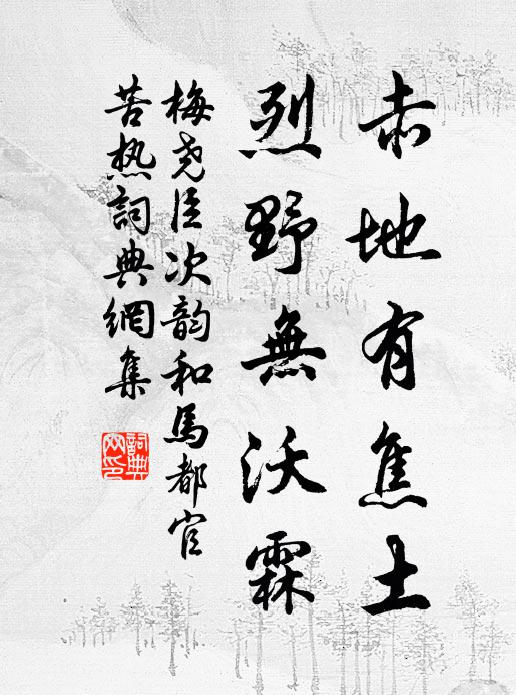 赤地有焦土
烈野無沃霖
梅尧臣次韵和馬都官
苦热詞典網集
詞典网印